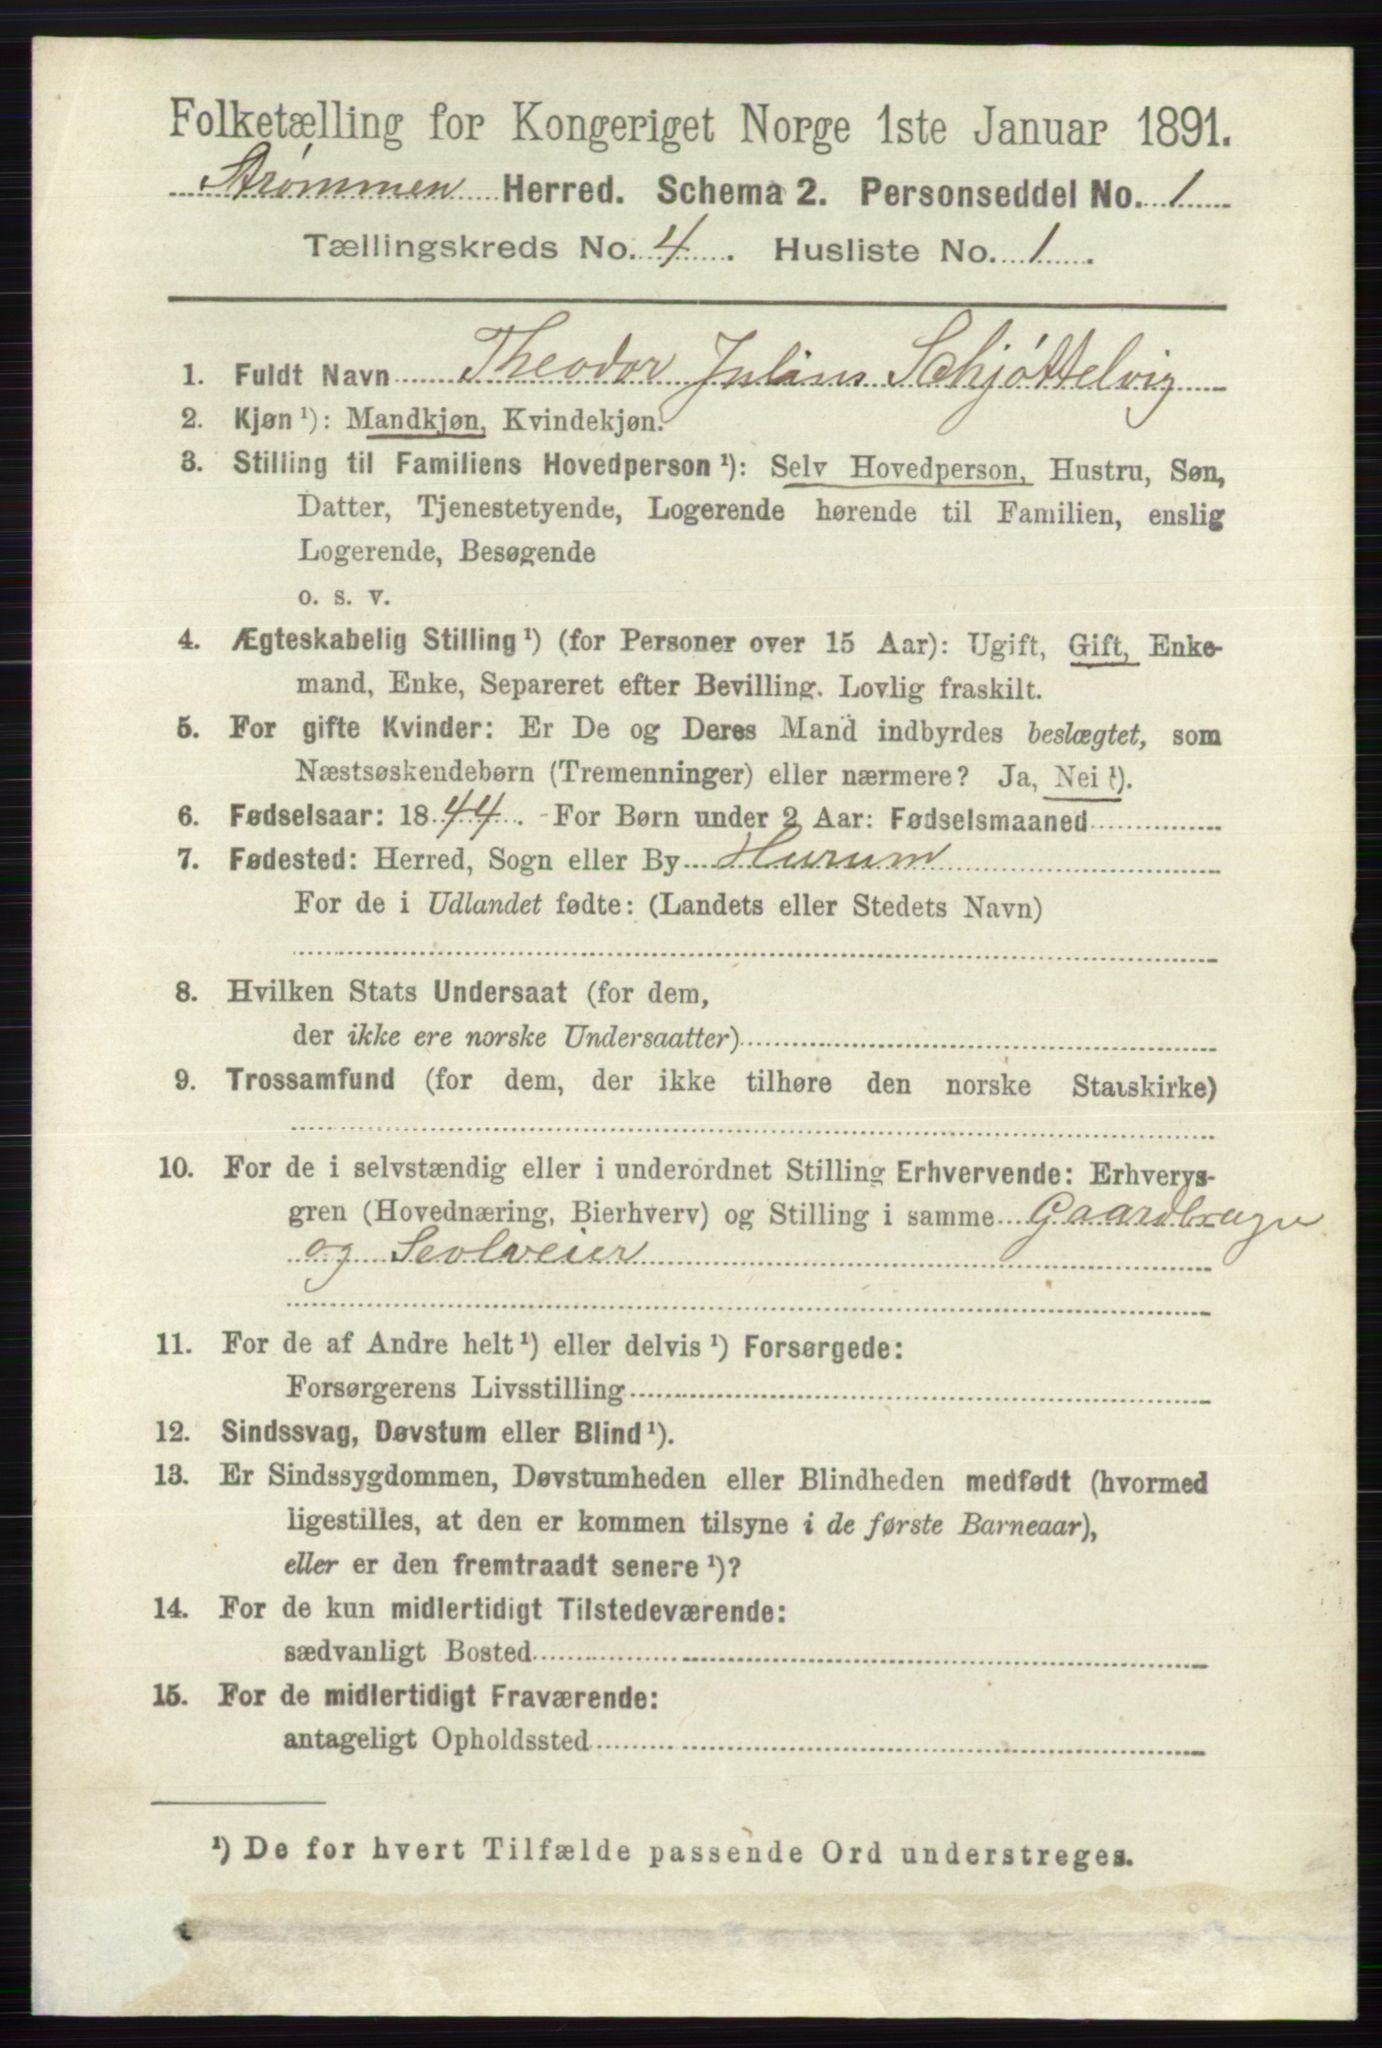 Folketælling for Kongeriget Norge 1ste Januar 1891.
Strømmen Herred. Schema 2. Personseddel No. 1
Tællingskreds No. 4. Husliste No. 1.
1. Fuldt Navn Theodor Julius Schjøttelvig
2. Kjøn¹): Mandkjøn, Kvindekjøn.
3. Stilling til Familiens Hovedperson¹): Selv Hovedperson, Hustru, Søn,
Datter, Tjenestetyende, Logerende hørende til Familien, enslig
Logerende, Besøgende
o. s. v.
4. Ægteskabelig Stilling¹) (for Personer over 15 Aar): Ugift, Gift, Enke-
mand, Enke, Separeret efter Bevilling. Lovlig fraskilt.
5. For gifte Kvinder: Er De og Deres Mand indbyrdes beslægtet, som
Næstsøskendebørn (Tremenninger) eller nærmere? Ja, Nei¹).
6. Fødselsaar: 1844. For Børn under 2 Aar: Fødselsmaaned
7. Fødested: Herred, Sogn eller By Hurum
For de i Udlandet fødte: (Landets eller Stedets Navn)
8. Hvilken Stats Undersaat (for dem,
der ikke ere norske Undersaatter)
9. Trossamfund (for dem, der ikke tilhøre den norske Statskirke)
10. For de i selvstændig eller i underordnet Stilling Erhvervende: Erhvervs-
gren (Hovednæring, Bierhverv) og Stilling i samme Gaardbruger
og
11. For de af Andre helt¹) eller delvis¹) Forsørgede:
Forsørgerens Livsstilling
12. Sindssvag, Døvstum eller Blind¹).
13. Er Sindssygdommen, Døvstumheden eller Blindheden medfødt (hvormed
ligestilles, at den er kommen tilsyne i de første Barneaar),
eller er den fremtraadt senere¹)?
14. For de kun midlertidigt Tilstedeværende:
sædvanligt Bosted
15. For de midlertidigt Fraværende:
antageligt Opholdssted
¹) De for hvert Tilfælde passende Ord understreges.